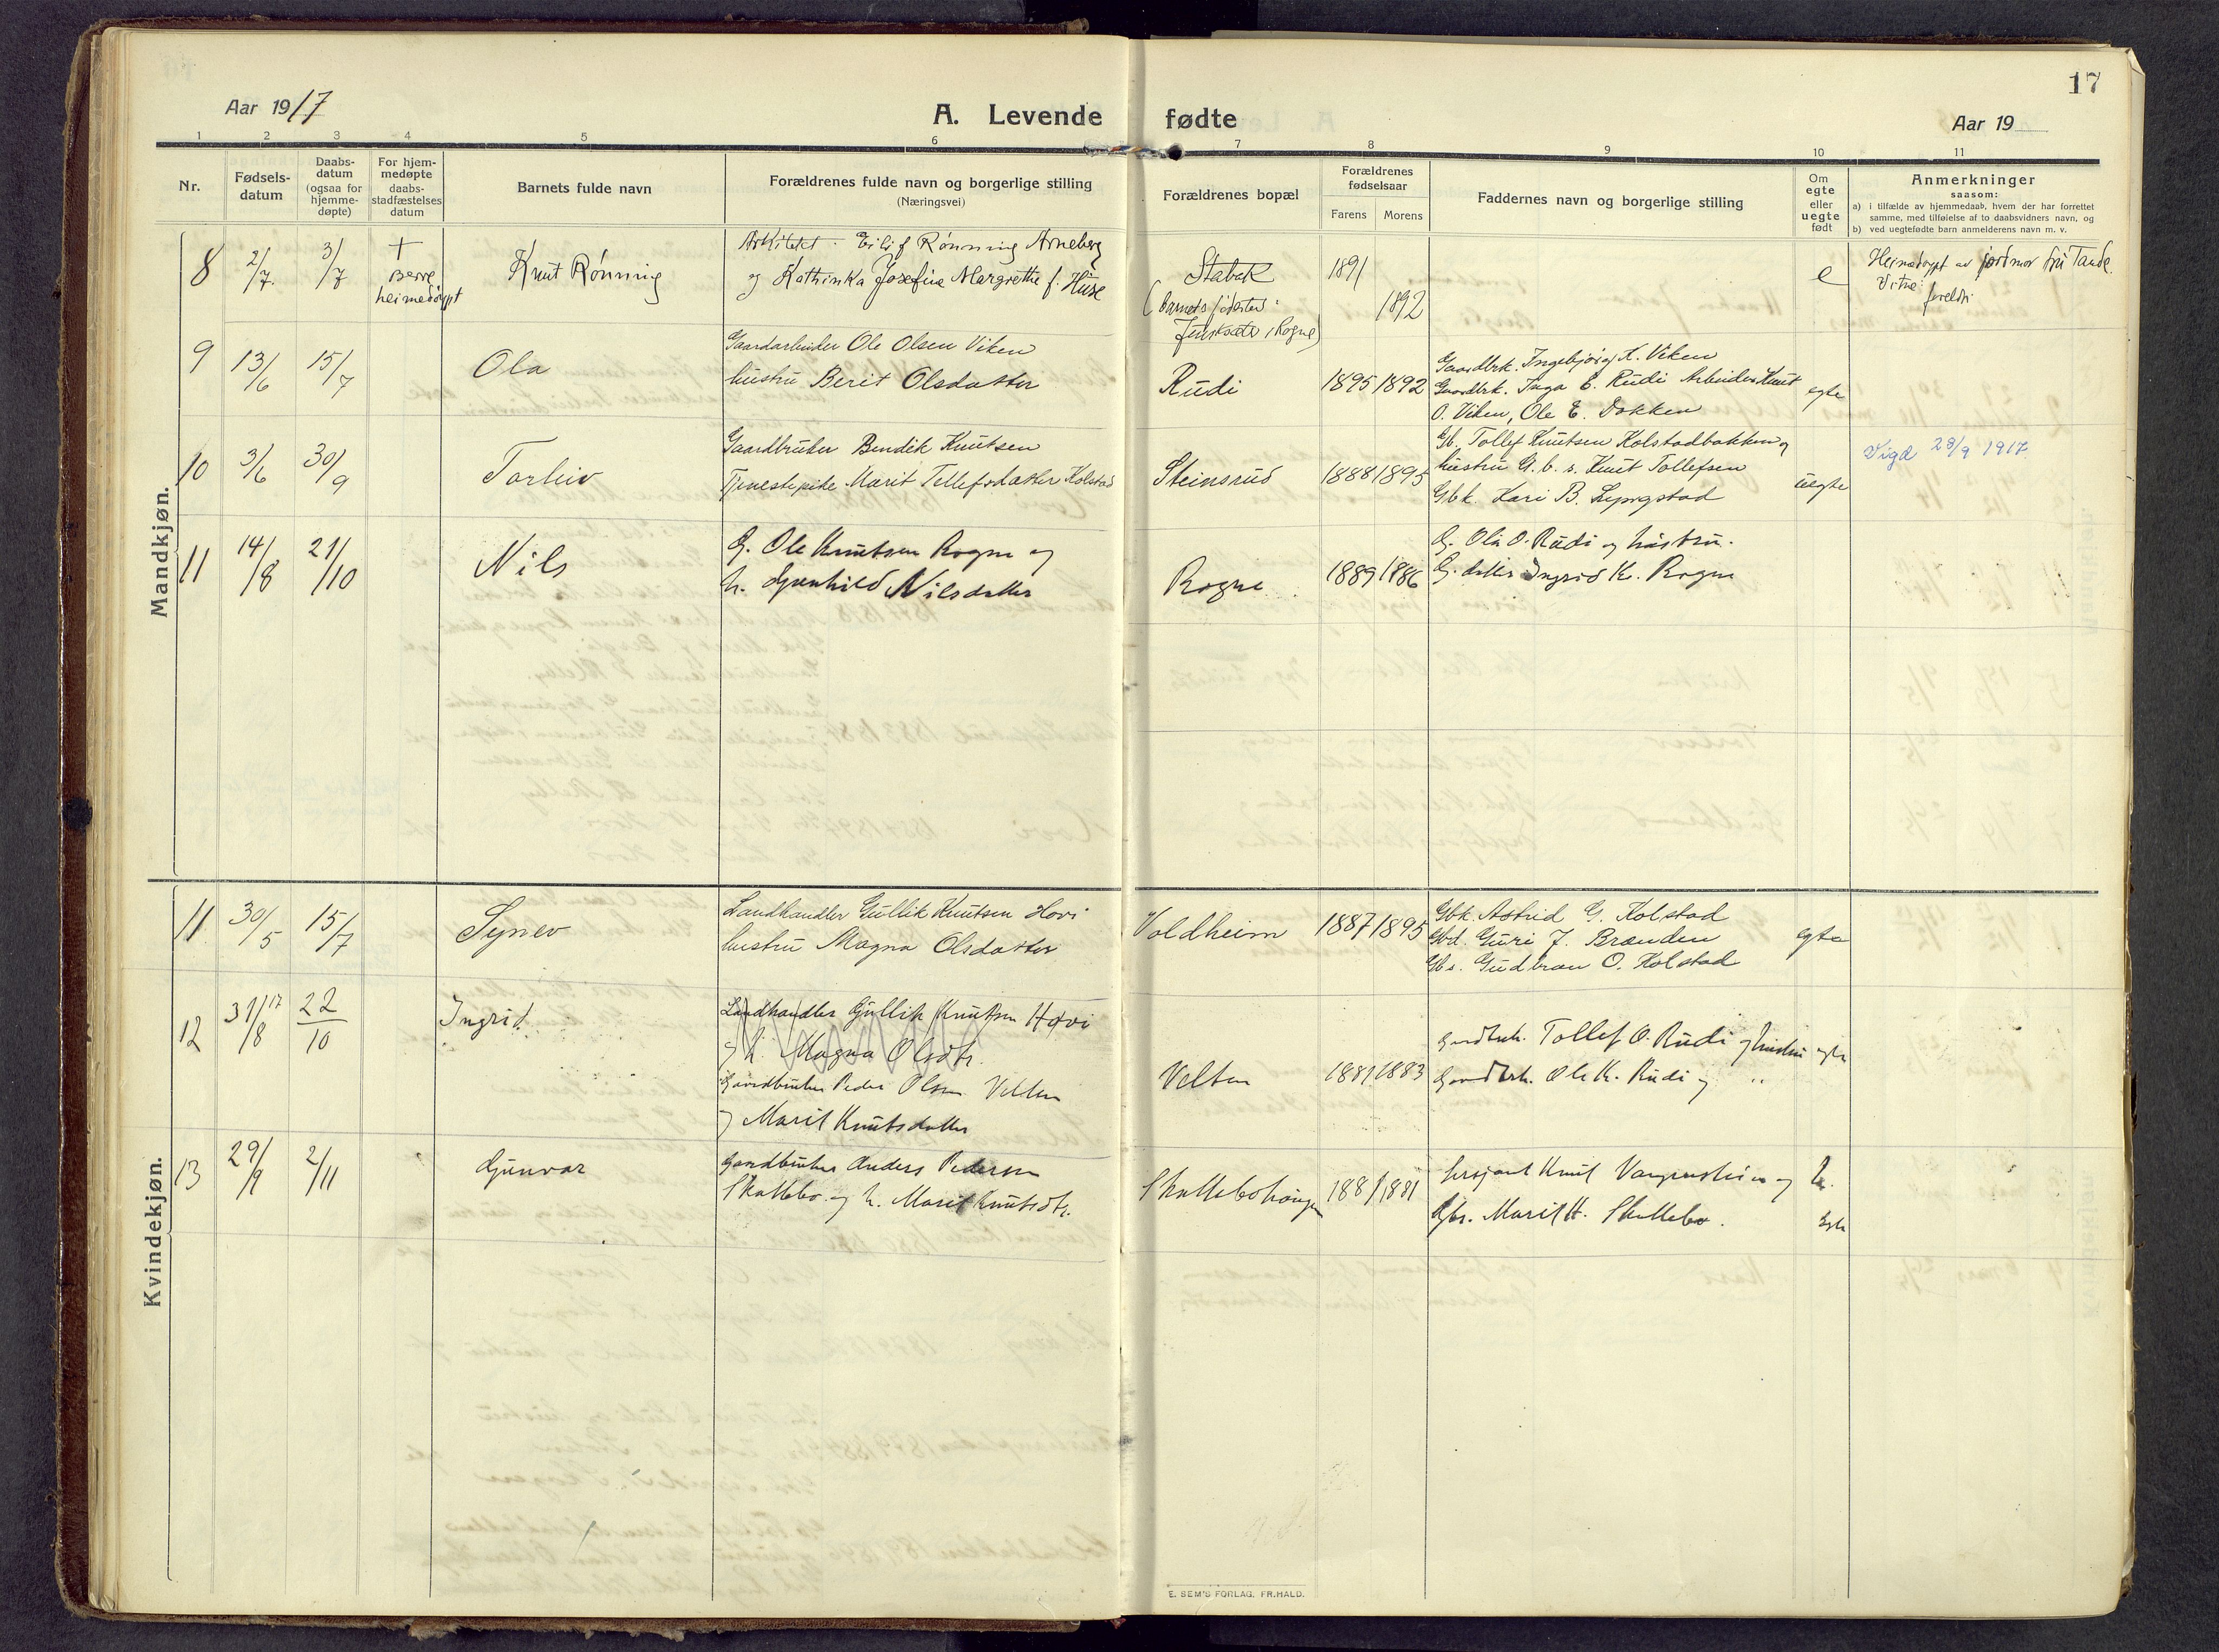 17
Aar 1917
A. Levende fødte
Aar 19
1 2 3 4 5 6 7 8 9 10 11
Nr.
Fødsels-
datum
Daabs-
datum
(ogsaa for
hjemme-
døpte)
For hjem-
medøpte
daabs-
stadfæstelses
datum
Barnets fulde navn
Forældrenes fulde navn og borgerlige stilling
(Næringsvei)
Forældrenes bopæl
Forældrenes
fødselsaar
Farens Morens
Faddernes navn og borgerlige stilling
Om
egte
eller
uegte
født
Anmerkninger
saasom:
a) i tilfælde av hjemmedaab, hvem der har forrettet
samme, med tilføielse af to daabsvidners navn, og
b) ved uegtefødte barn anmelderens navn m. v.
Mandkjøn.
8
2/7.
3/7
+
Berre
heimedøypt
Knut Rönning
Arkitekt Eilif Rönning Arneberg
og Kathinka Josefine Margrethe f. Huse
Stabak
(Barnets fødested:
i Rogne)
1891
1892
e
Heimedøypt av jordmor fru Tande.
Vitne:
foreldri
9
13/6
15/7
Ola
Gaardarbeider Ole Olsen Viken
hustru Berit Olsdatter
Rudi
1895 1892
Gaardbrk. Ingebjørg K. Viken
Gaardbrk. Inga E. Rudi Arbeider Knut
O. Viken, Ole E. Dokken
egte
10
3/6
30/9
Torleiv
Gaardbruker Bendik Knutsen
Tjenestepike Marit Tollefsdatter Kolstad
Steinsrud
1888 1895
Gb. Tollef Knutsen Kolstadbakken og
hustru G.b.s. Knut Tollefsen
Gbk. Kari B.
uegte
Vigd 28/9 1917
11
14/8
21/10
Nils
G. Ole Knutsen Rogne og
h. Gunhild Nilsdatter
Rogne
1889 1886
G. Ola O. Rudi og hustru.
G. datter Ingrid K. Rogne
Kvindekjøn.
11
30/5
15/7
Synev
Landhandler Gullik Knutsen Hovi
hustru Magna Olsdatter
Voldheim
1887 1895
Gbk. Astrid G. Kolstad
Gbd. Guri J. Brænden
Gbs. Gudbran O. Kolstad
egte
12
31/8 17
22/10
Ingrid.
Landhandler Gullik Knutsen Hovi
og h. Magna Olsdtr.
Gaardbruker Peder Olsen Velten
og Marit Knutsdatter
Velten
1881 1883
Gardbrk. Tollef O. Rudi og hustru
Gardbrk. Ole K. Rudi og "
egte
13
29/9
2/11
Gunvor
Gardbruker Anders Pedersen
Skattebo og h. Marit Knutsdtr.
1881 1881
Sersjant Knut Vangensten og h.
Gbr. Marit H. Skattebo.
egte
E. SEM'S FORLAG, FR.HALD.